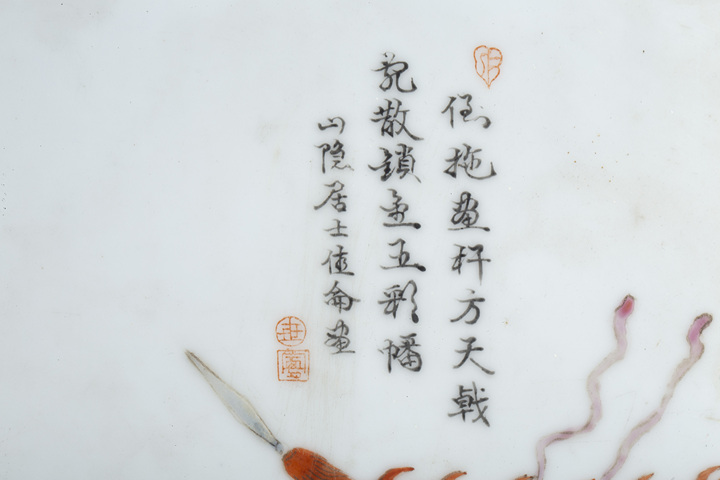 倒拖畫杆方天戟
亂散鎖金五彩幡
山隐居士佳侖畫